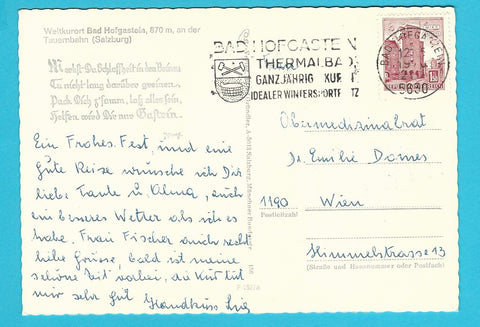 Weltkurort Bad Hofgastein, 870 m, an der
Tauernbahn (Salzburg)
Merkst Du Schlaffheit in den Beinen
Tu nicht lang darüber greinen.
Pack Dich z'samm, laß alles sein,
Helfen wird Dir nur Gastein.
Ein Frohes Fest, und eine
gute Reise wünsche ich Dir
liebe Tante u. Alma, auch
ein besseres Wetter als ich es
habe. Frau Fischer auch recht
liebe Grüsse, bald ist meine
schöne Zeit vorbei, die Kur tut
mir sehr gut Handkuss
BAD HOFGASTEIN
THERMALBAD
GANZJÄHRIG KUR
IDEALER WINTERSPORT
BAD HOFGASTEIN
5630
Obermedizinalrat
Dr. Emilie Domes
1190
Postleitzahl
Wien
Himmelstrasse 13
(Straße und Hausnummer oder Postfach)